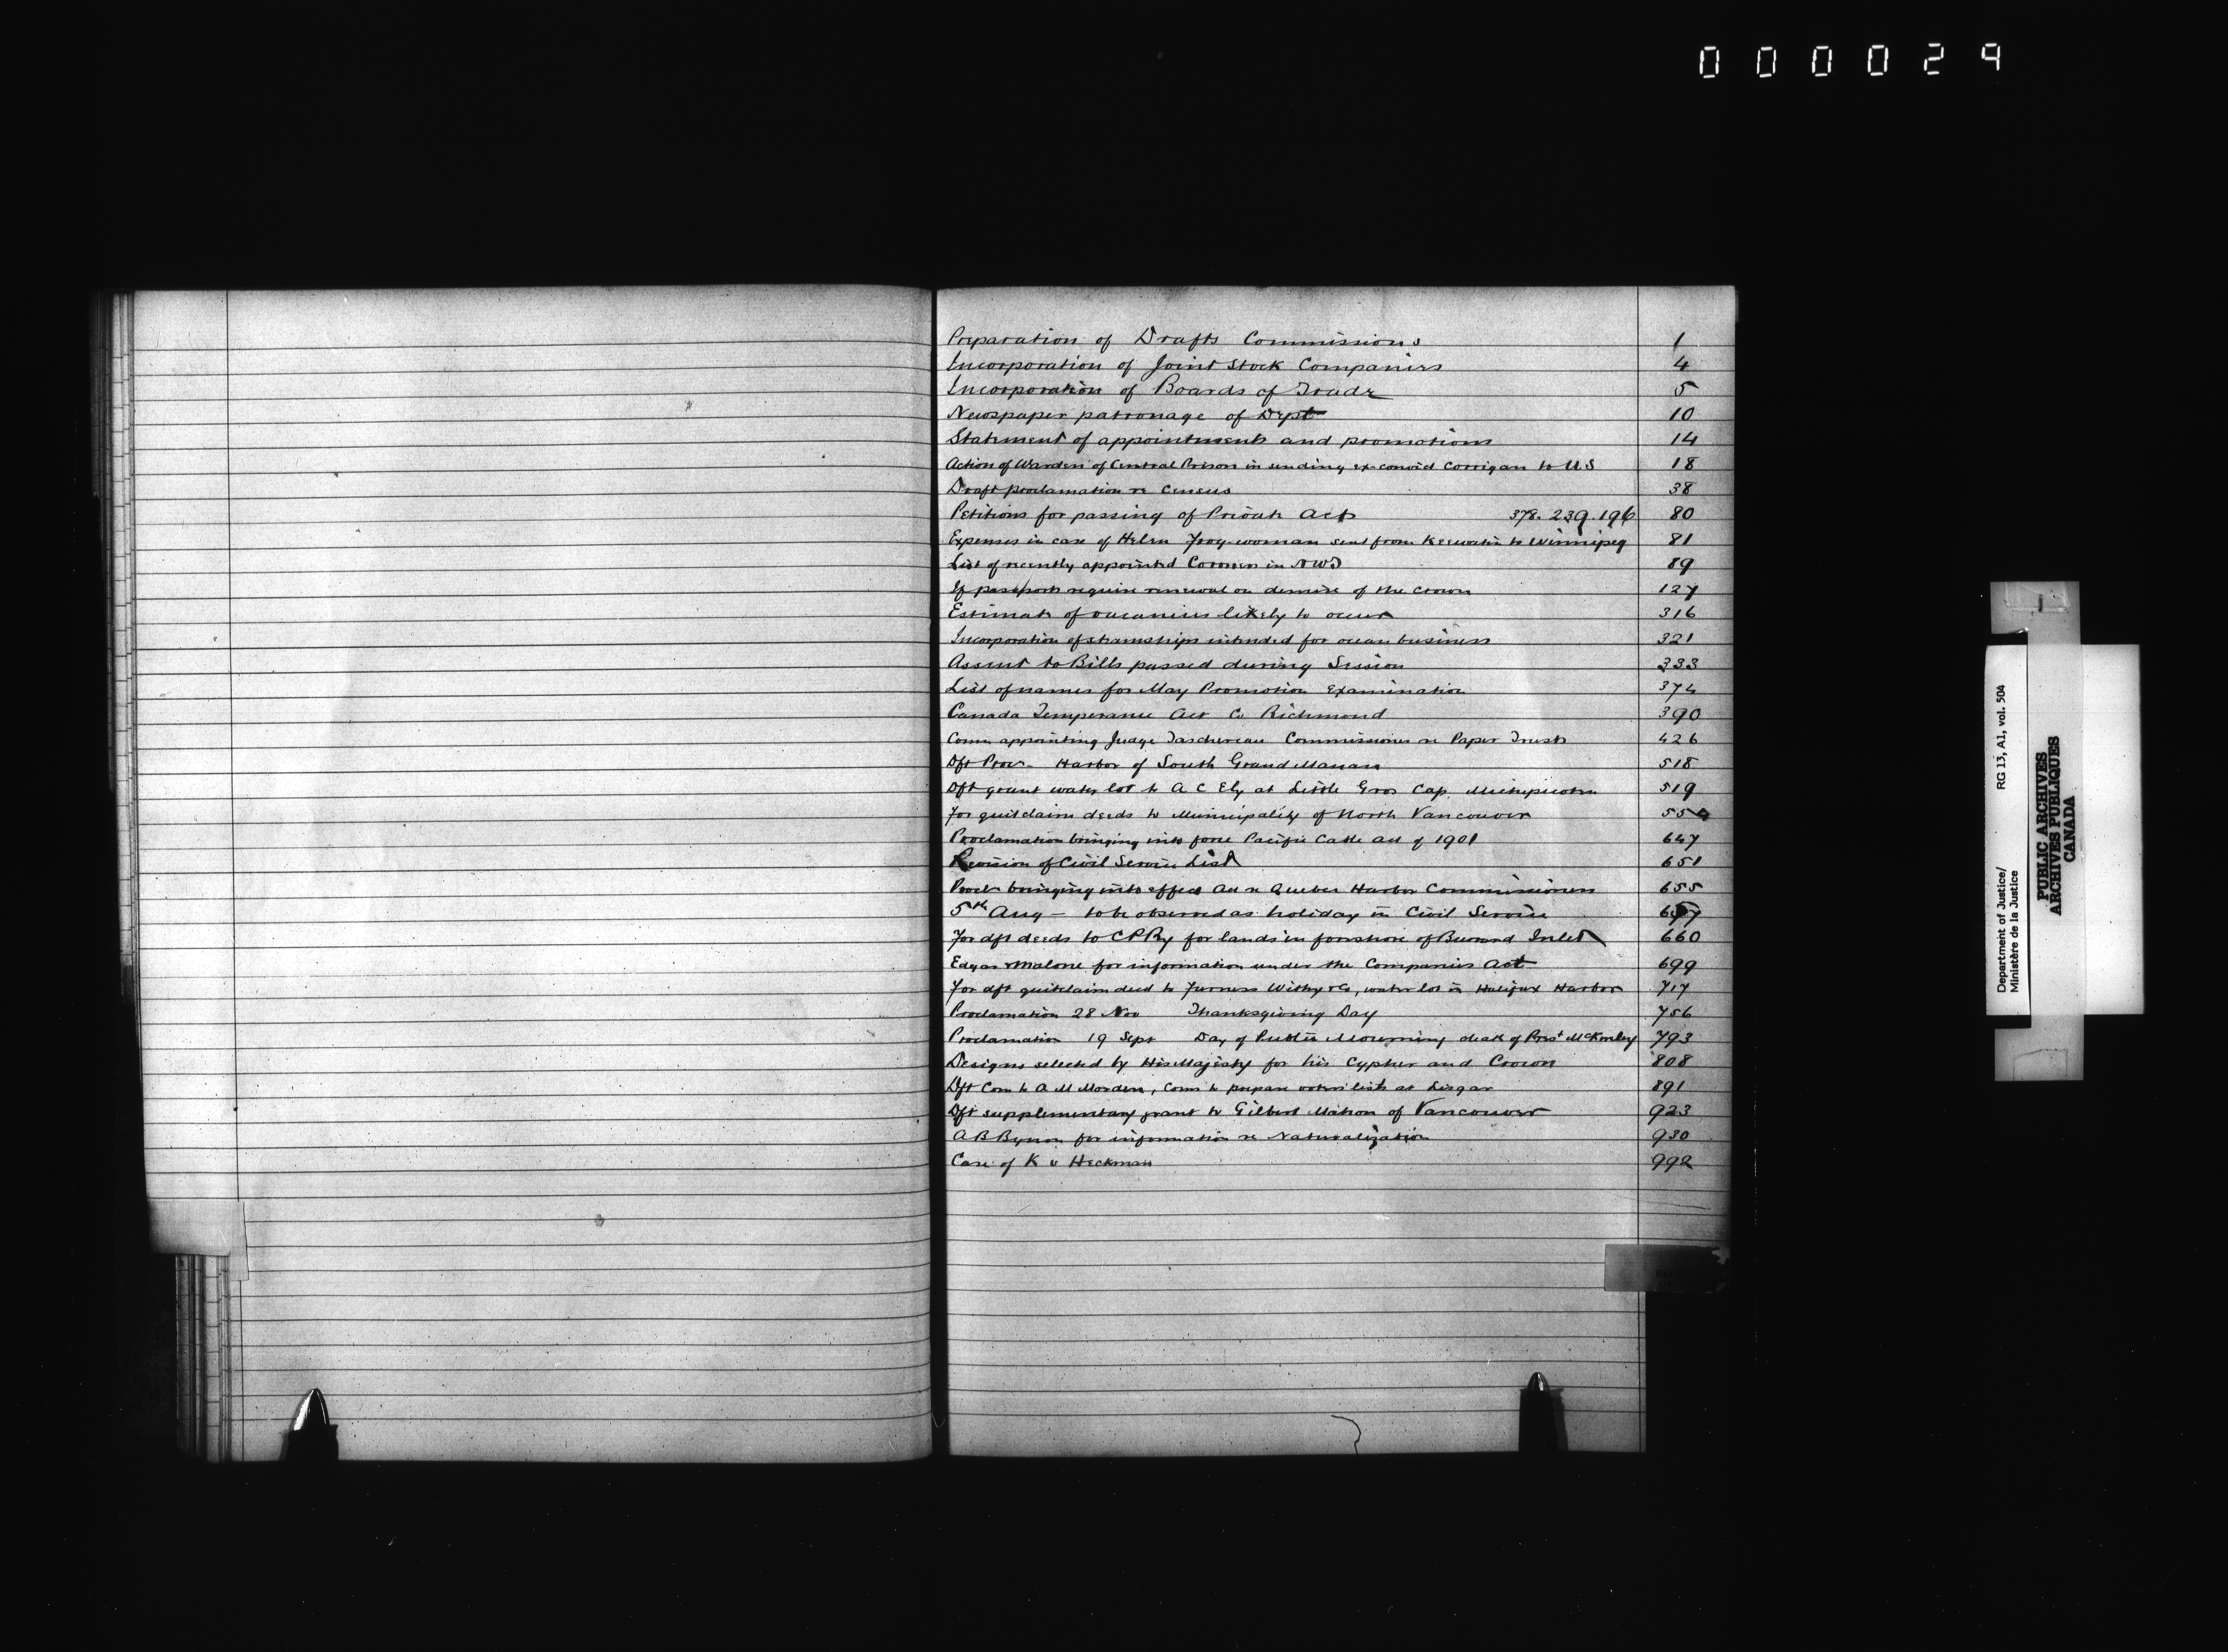 000029
Preparation of Drafts Commissions 1
Incorporation of Joint Stock Companies 4
Incorporation of Boards of Trade 5
Newspaper patronage of Dept 10
Statement of appointments and promotions 14
Action of Warden of Central Prison in sending ex-convict Corrigan to U.S 18
Draft proclamation re Census 38
Petitions for passing of Private Acts 378. 239. 196 80
Expenses in case of Helen woman sent from Keewatin to Winnipeg 81
List of recently appointed Coroners in NWT 89
If passports require renewal on demise of the Crown 127
Estimate of vacancies likely to occur 316
Incorporation of steamships intended for ocean business 321
Assent to Bills passed during Session 333
List of names for May Promotion Examination 374
Canada Temperance Act Co Richmond 390
Comn appointing Judge Taschereau Commissioner re Paper Trust 426
Dft Proc - Harbor of South Grand Manan 518
Dft grant water lot to A C Ely at Little Gros Cap. Michipicoten 519
For quitclaim deeds to Municipality of North Vancouver 55
Proclamation bringing into force Pacific Cable Act of 1901 647
Revision of Civil Service List 651
Procln bringing into effect Act re Quebec Harbor Commissioners 655
5th Aug - to be observed as holiday in Civil Service 657
For dft deeds to CPRy for lands in foreshore of Burrard Inlet 660
Edgar & Malone for information under the Companies Act 699
For dft quitclaim deed to Furness Withy & Co, water lot in Halifax Harbor 717
Proclamation 28 Nov Thanksgiving Day 756
Proclamation 19 Sept Day of Public Mourning death of Prest McKinley 793
Designs selected by His Majesty for his Cypher and Crown 808
Dft Com to A M Morden, Comr to prepare voters' lists at Lisgar 891
Dft supplementary grant to Gilbert Mahon of Vancouver 923
A B for information re Naturalization 930
Case of K v Heckman 992
Department of Justice/ RG 13, A1, vol. 504
Ministère de la Justice
PUBLIC ARCHIVES
ARCHIVES PUBLIQUES
CANADA